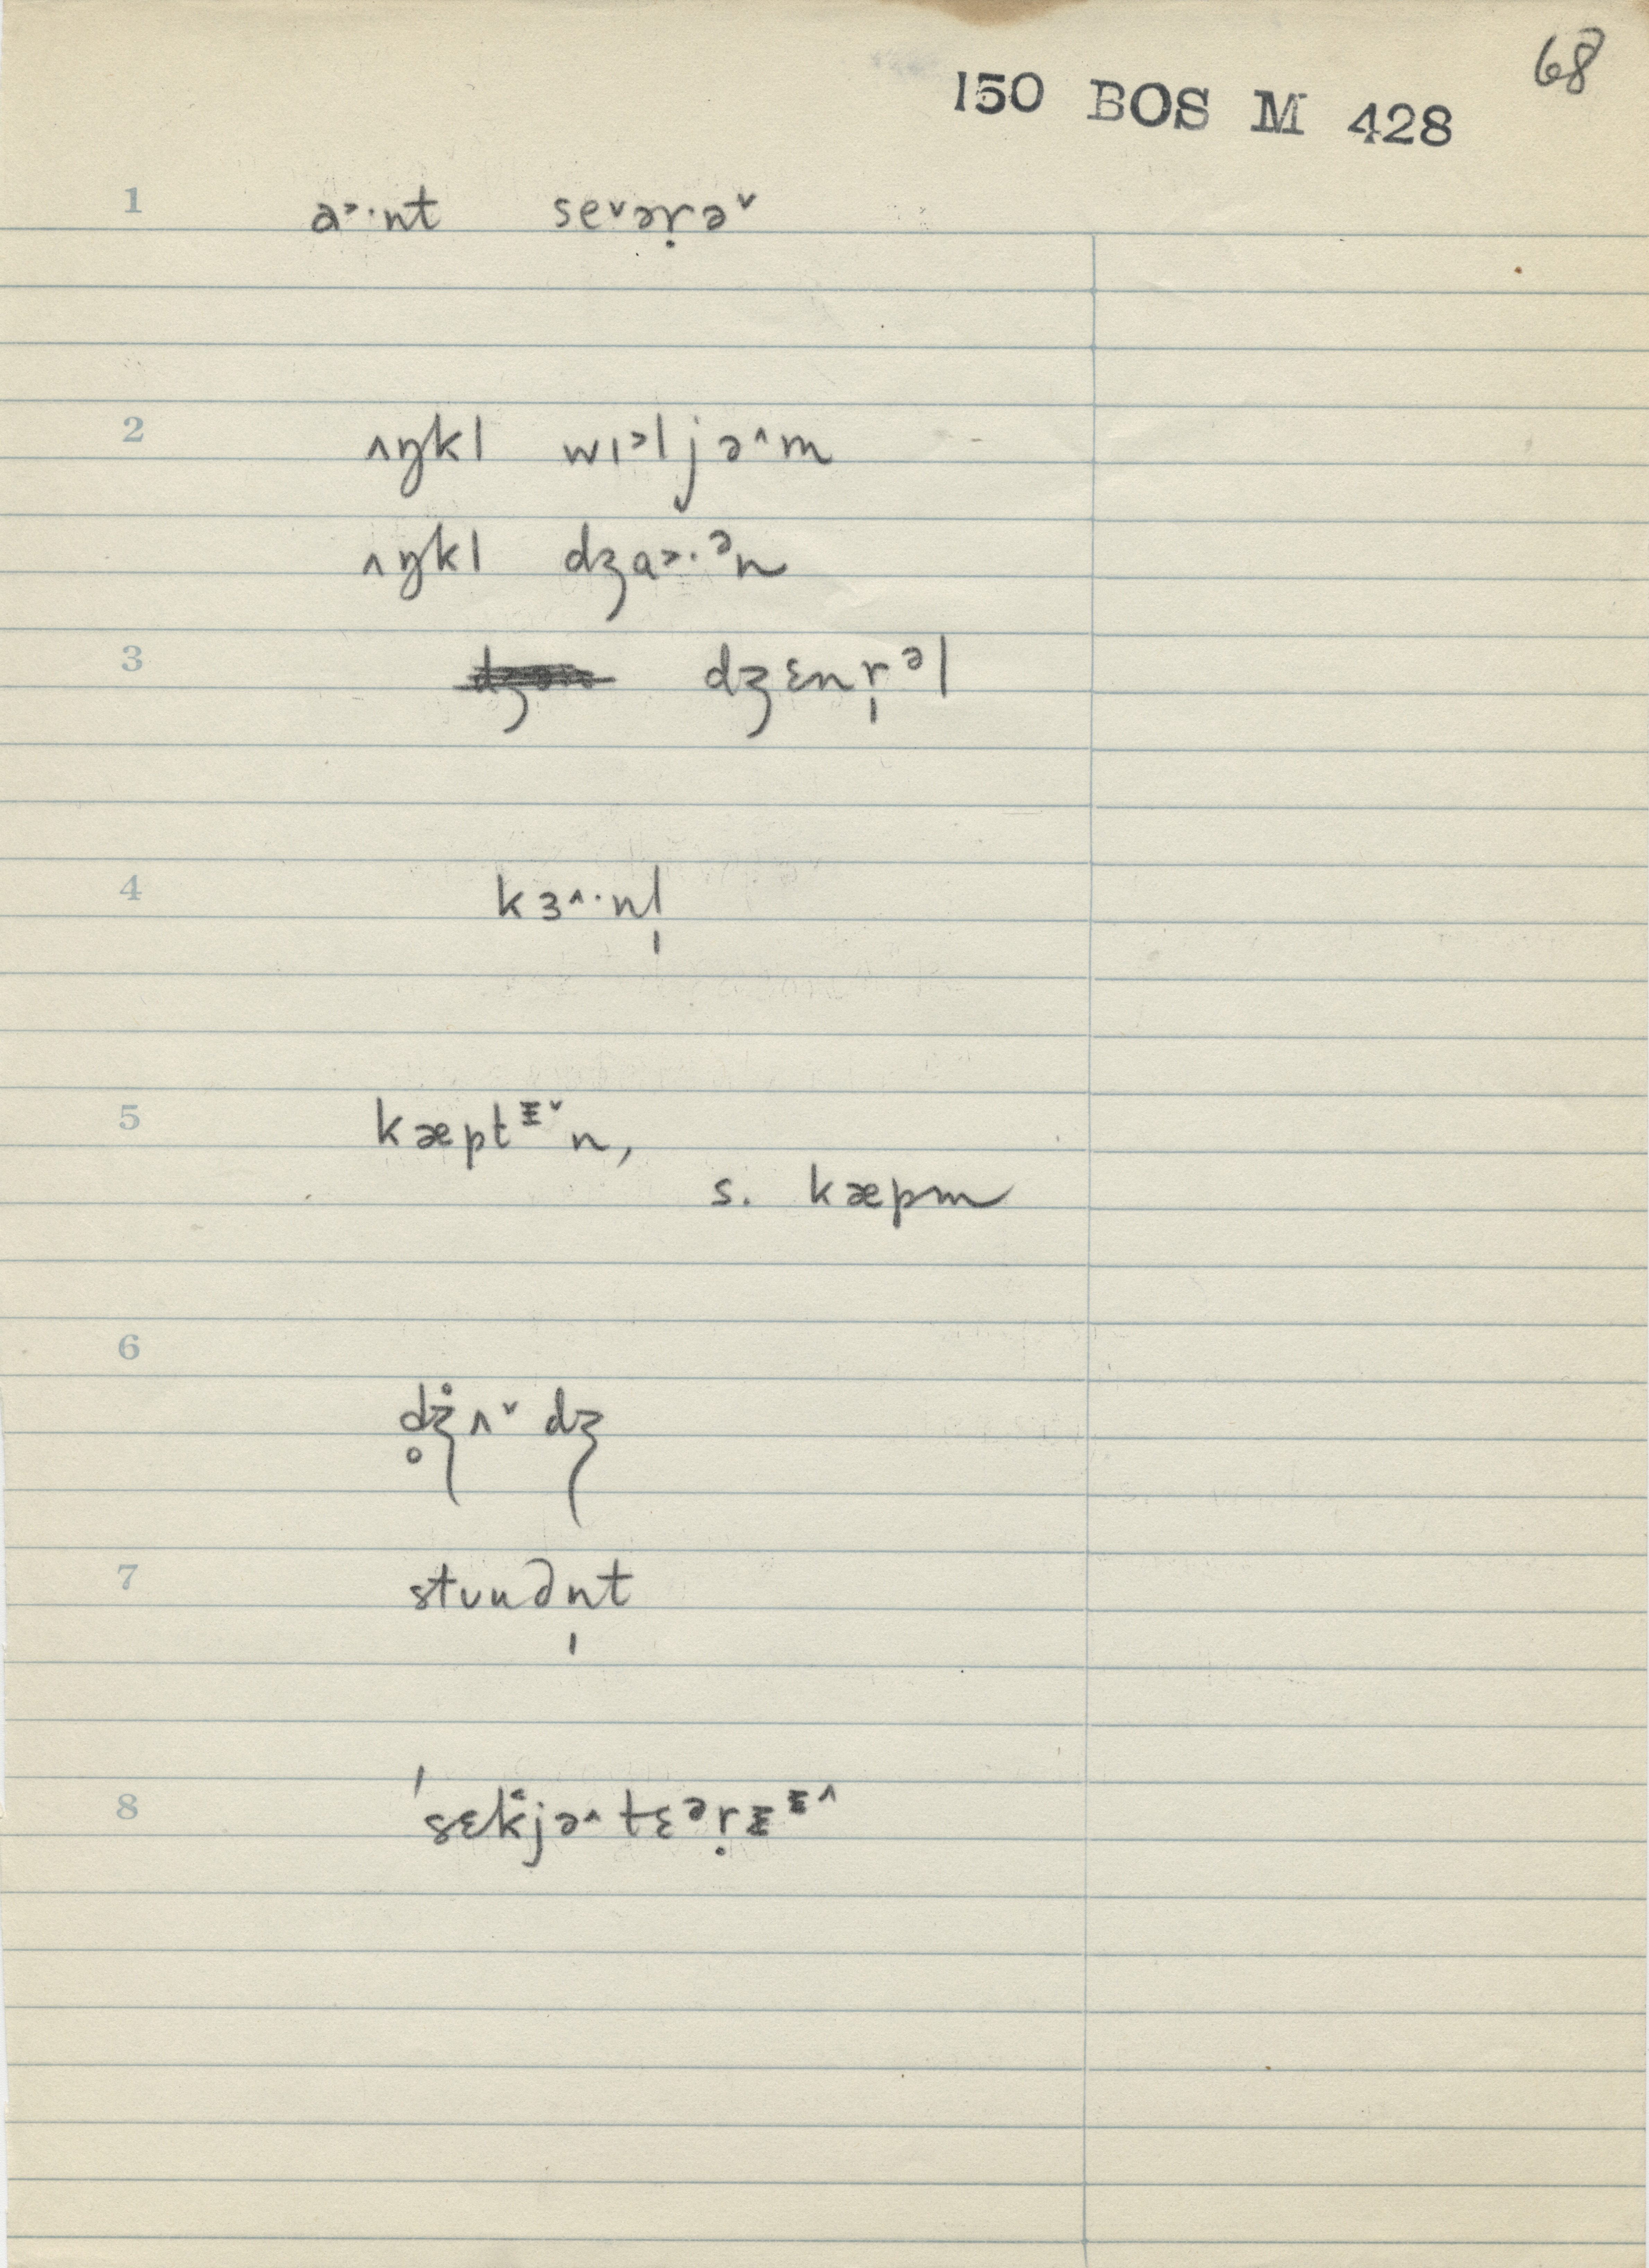 68
150 BOS M 428
1 a˃·nt se˅əṛə˅
2 ʌŋkl wɪ˃ljə˄m
ʌŋkl dʒa˃·ᵊn
3 dʒɛnr̩ᵊl
4 kɜ˄·nl̩
5 kæptᵻ˅n,
s. kæpm
6 d̥ʒ̊ʌ˅dʒ
7 stʊu∂n̩t
8 ˈsɛk̂jə˄tɛᵊṛᵻᵻ˄